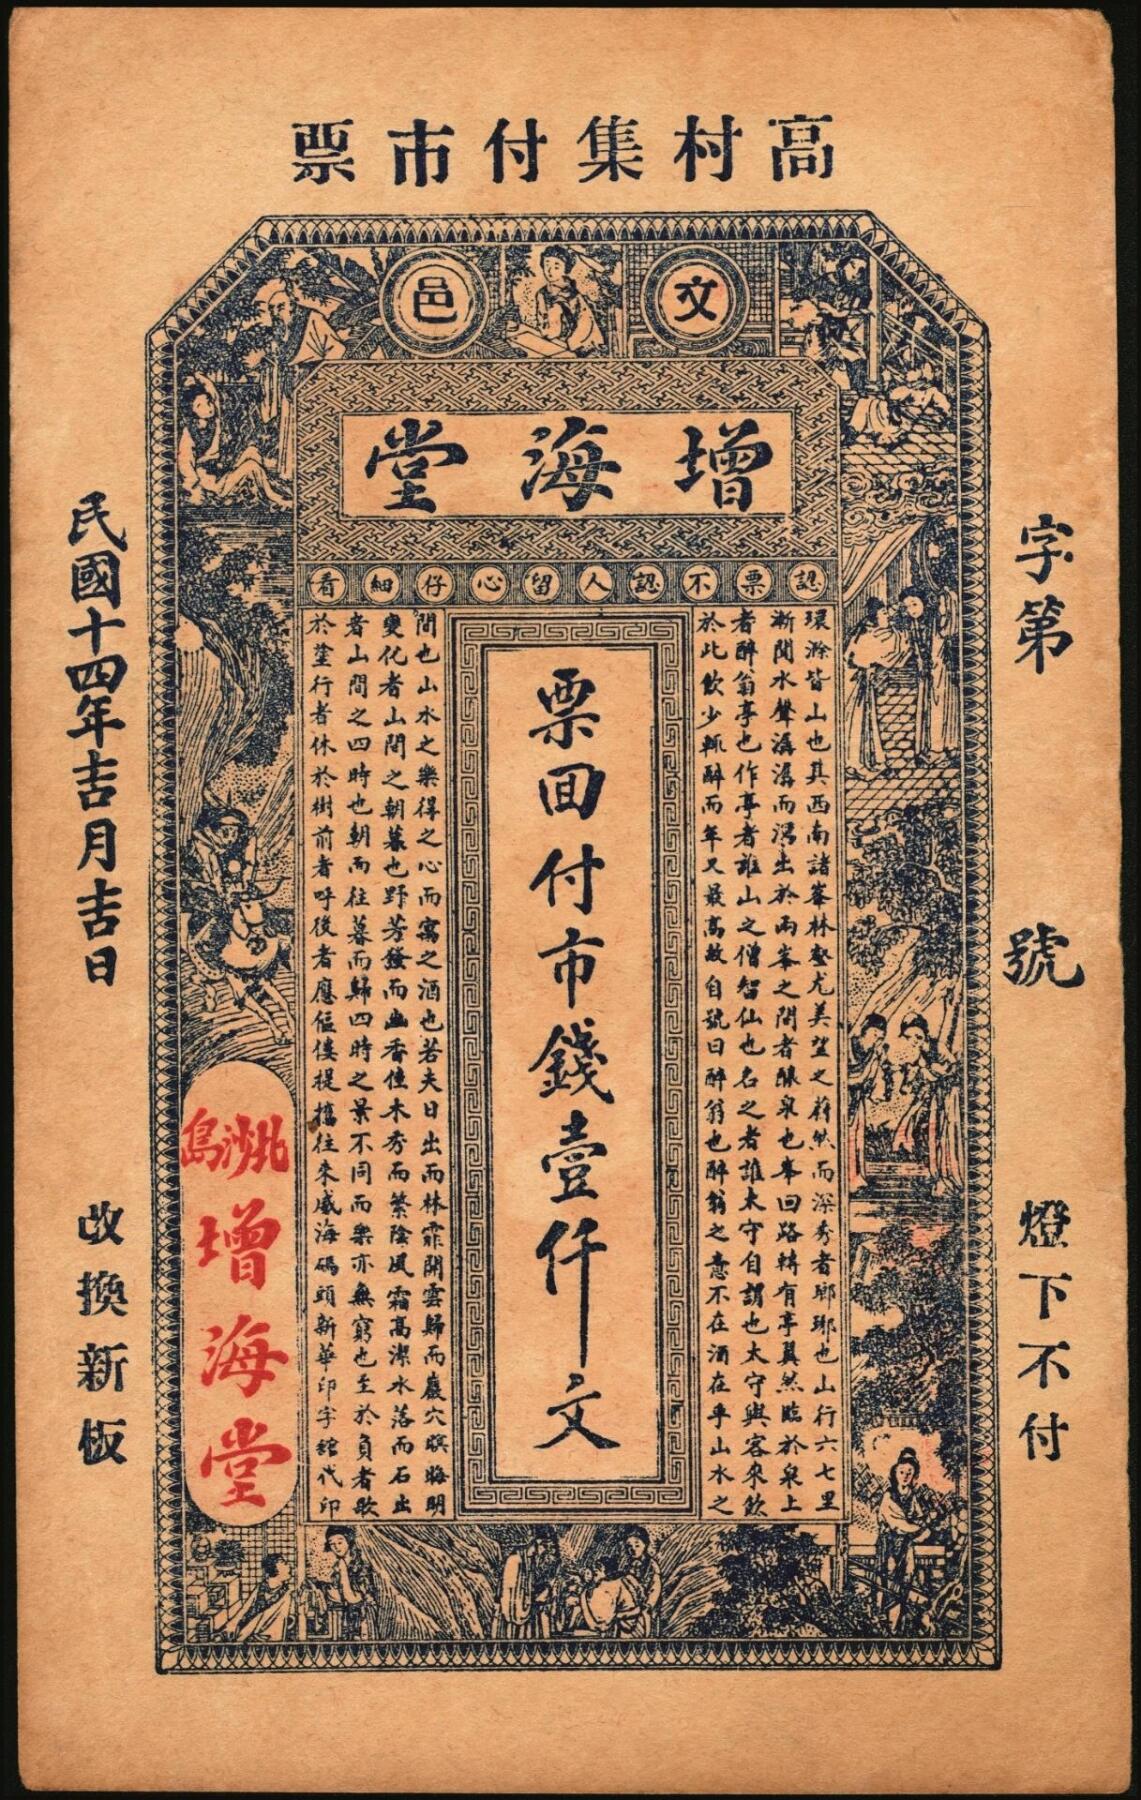 高村集付市票
文邑
增海堂
認票不認人留心仔細看
字第 號
燈下不付
環滁皆山也其西南諸峯林壑尤美望之蔚然而深秀者瑯琊也山行六七里
漸聞水聲潺潺而瀉出於兩峯之間者釀泉也峯回路轉有亭翼然臨於泉上
者醉翁亭也作亭者誰山之僧智仙也名之者誰太守自謂也太守與客來飲
於此飲少輒醉而年又最高故自號曰醉翁也醉翁之意不在酒在乎山水之
票回付市錢壹仟文
間也山水之樂得之心而寓之酒也若夫日出而林霏開雲歸而巖穴暝晦明
變化者山間之朝暮也野芳發而幽香佳木秀而繁陰風霜高潔水落而石出
者山間之四時也朝而往暮而歸四時之景不同而樂亦無窮也至於負者歌
於塗行者休於樹前者呼後者應傴僂提攜往來威海碼頭新華印字館代印
增海堂
民國十四年吉月吉日
改換新板